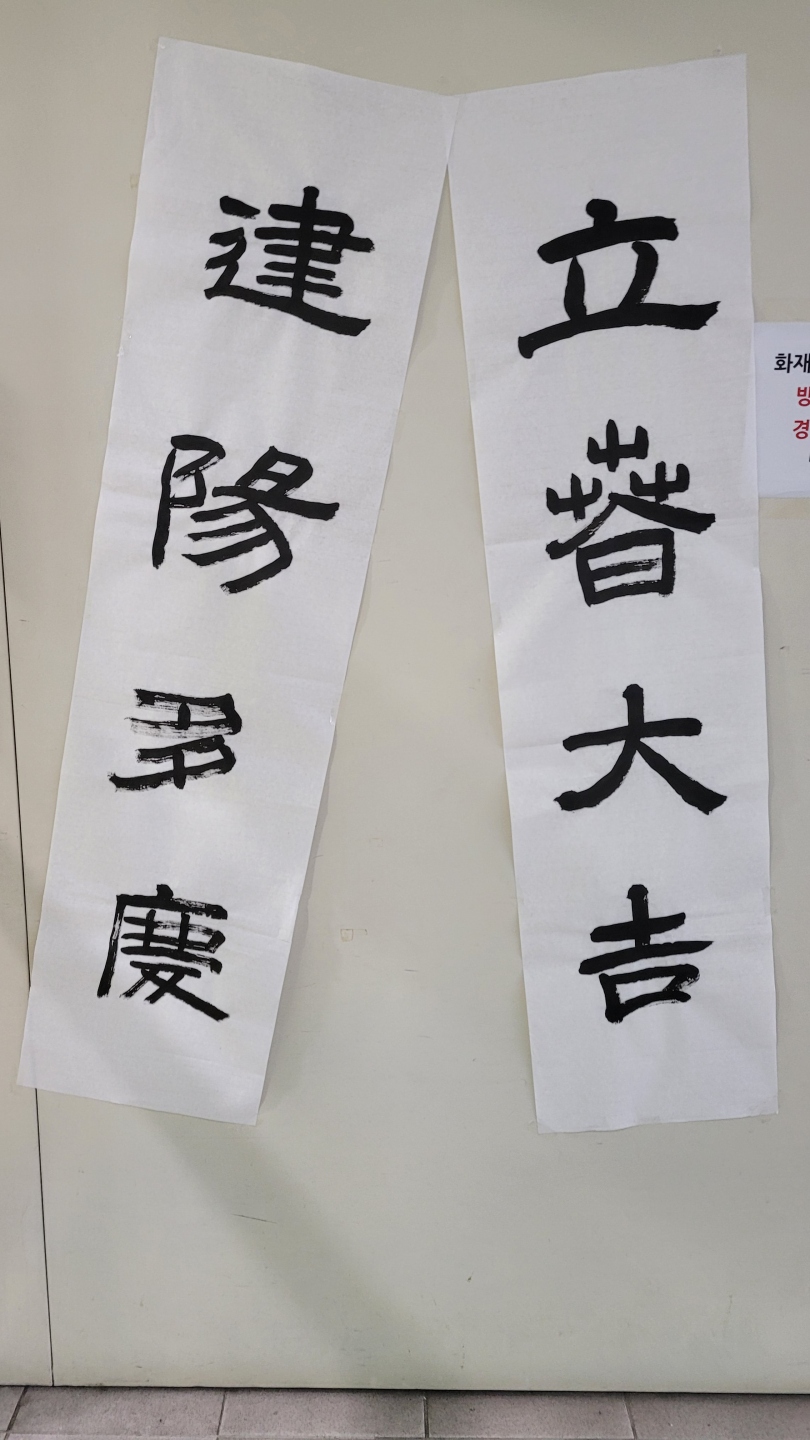 立春大吉
建陽多慶
화재